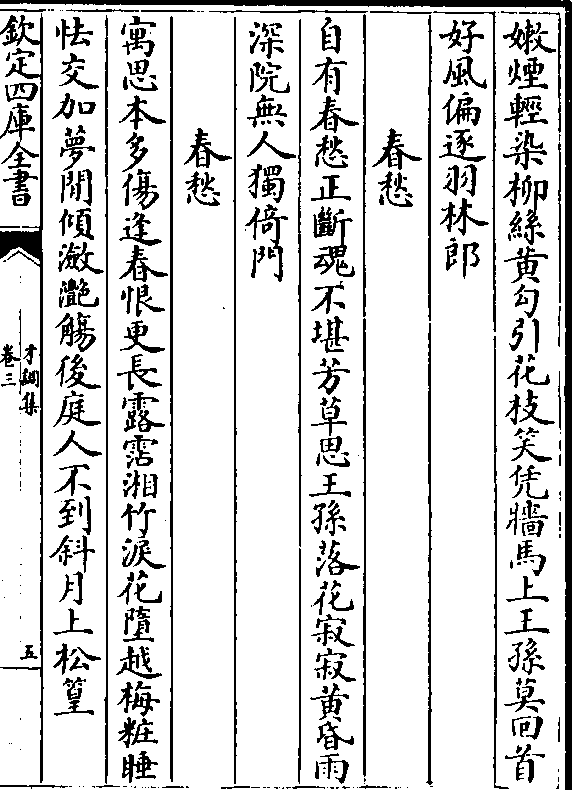 嫩煙輕染柳絲黄勾引花枝笑凭牆馬上王孫莫回首
好風偏逐羽林郎
春愁
自有春愁正斷魂不堪芳草思王孫落花寂寂黄昏雨
深院無人獨倚門
春愁
寓思本多傷逢春恨更長露霑湘竹淚花墮越梅粧睡
怯交加夢閒傾瀲灩觴後庭人不到斜月上松篁
欽定四庫全書
才調集
卷三
五